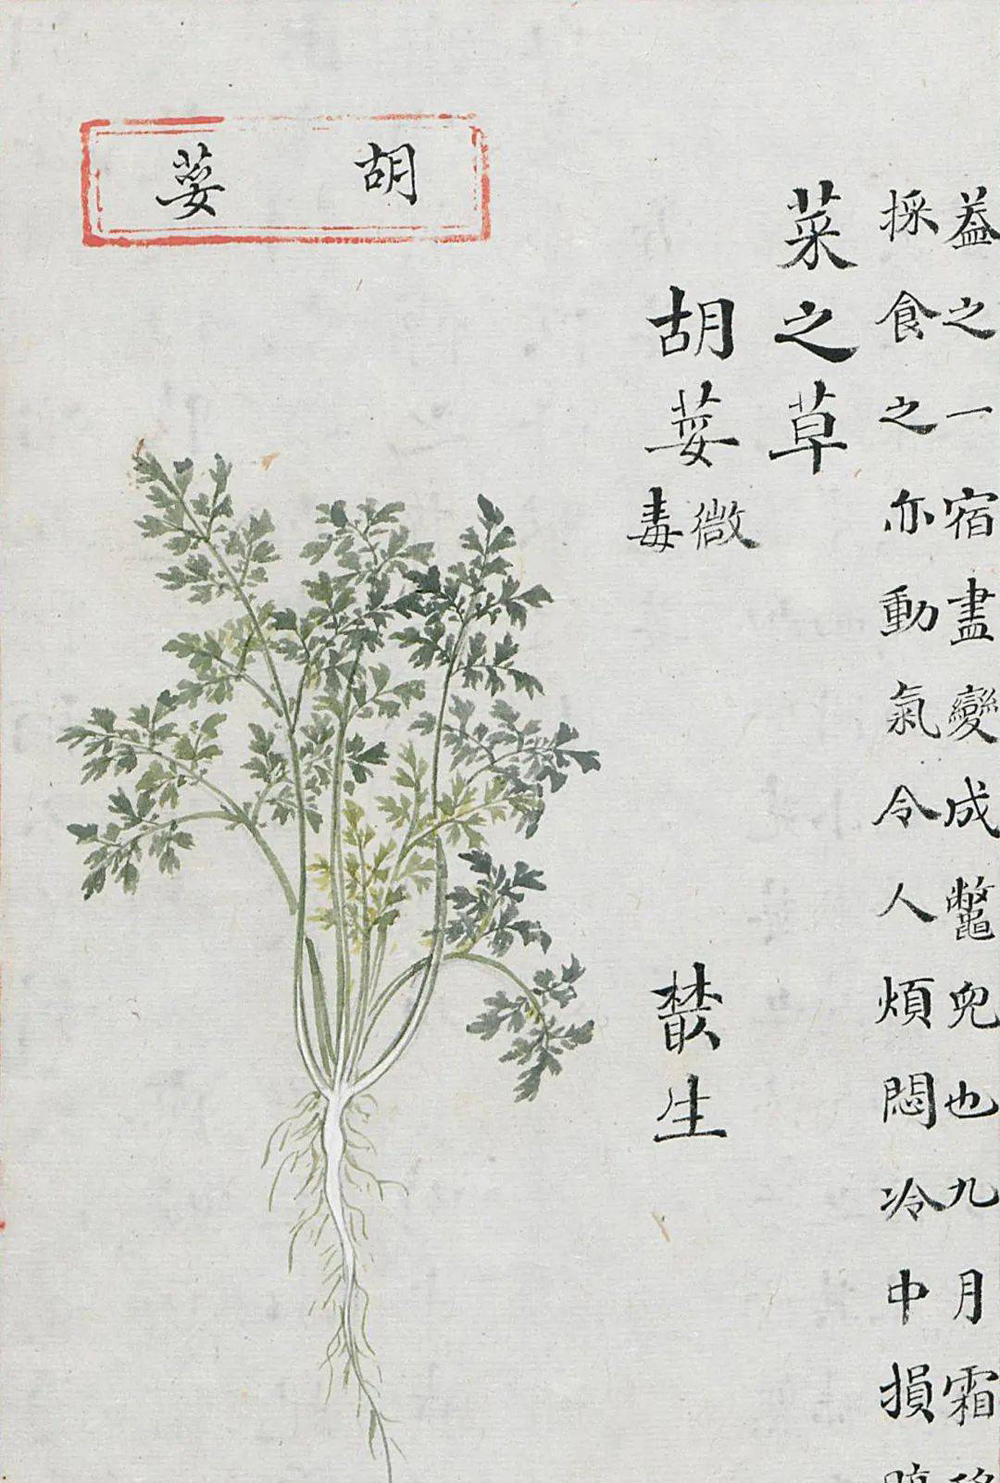 葢之一宿盡變成鼈兒也九月霜
採食之亦動氣令人煩悶冷中損
菜之草
胡荽 微毒 散生
胡荽